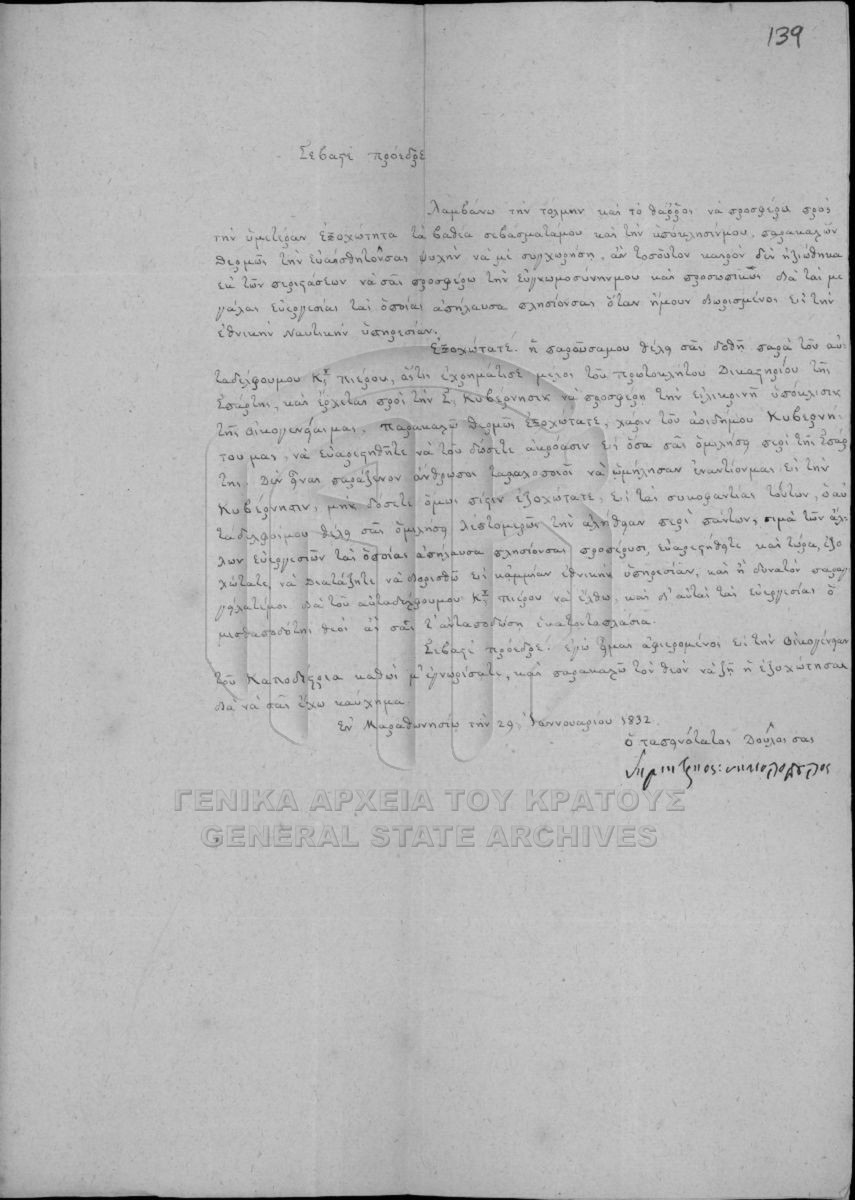 139
Σεβαστέ πρόεδρε
Λαμβάνω τὴν τόλμην καὶ τὸ θάῤῥος νὰ προσφέρω πρὸς
τὴν ὑμετέραν ἐξοχωτητα τὰ βαθέα σεβάσματαμου καὶ τὴν ὑπόκλησίνμου, παρακαλῶν
θερμῶς τὴν εὐαίσθητονσας ψυχὴν νὰ μὲ συγχωρήση, ἂν τοσοῦτον καιρὸν δὲν ἠξιώθηκα
ἐκ τῶν περιςάσεων νὰ σᾶς προσφέρω τὴν εὐγνωμοσύνηνμου καὶ προσωπικῶς διὰ ταὶ με
γάλας εὐεργεσίας ταὶ ὁποίας ἀπήλαυσα πλησίονσας ὅταν ἤμουν διωρισμένος εἰς τὴν
ἐθνικὴν Ναυτικὴν ὑπηρεσίαν.
Ἐξοχώτατέ. ἡ παροῦσαμου θέλῃ σᾶς δοθῆ παρὰ τοῦ αὐ
ταδέλφουμου Κ. Πιέρου, ὅςτις ἐχρημάτισε μέλος τοῦ πρωτοκλήτου Δικαςηρίου τῆς
Σπάρτης, καὶ ἔρχεται πρὸς τὴν Σ. Κυβέρνησιν νὰ προσφέρῃ τὴν εἰλικρινῆ ὑπόκλισιν
τῆς οἰκογενείαςμας, παρακαλῶ θερμῶς ἐξοχώτατε, χάριν τοῦ ἀοιδήμου Κυβερνή
του μας, νὰ εὐαρεςηθῆτε νὰ τοῦ δώσετε ἀκρόασιν εἰς ὅσα σᾶς ὁμιλήσῃ περὶ τῆς Σπάρ
της. Δὲν εἶναι παράξενον ἄνθρωποι ταραχοποιοὶ νὰ ὡμήλησαν ἐναντίονμας εἰς τὴν
Κυβέρνησιν, μὴν δόσετε ὅμως πίςιν ἐξοχώτατε, εἰς ταὶ συκοφαντίας τούτων, ὁ αὐ
τάδελφοςμου θέλῃ σᾶς ὁμιλήσῃ λεπτομερῶς τὴν ἀλήθειαν περὶ πάντων, σιμὰ τῶν ἄλ
λων εὐεργεσιῶν ταὶ ὁποίας ἀπήλαυσα πλησίονσας προπέρυσι, εὐαρεςήθητε καὶ τώρα, ἐξο
χώτατε, νὰ διατάξητε νὰ διορισθῶ εἰς κἀμμίαν ἐθνικὴν ὑπηρεσίαν, καὶ ἢ δυνατὸν παραγ
γείλατέμοι διὰ τοῦ αὐταδέλφουμου Κ. Πιέρου νὰ ἔλθω, καὶ δι' αὐταὶ ταὶ εὐεργεσίας ὁ
μισθαποδότης θεὸς ἂς σᾶς τ' ἀνταποδώσῃ ἑκατονταπλάσια.
Σεβαστὲ πρόεδρε! ἐγὼ εἶμαι ἀφιερομένος εἰς τὴν οἰκογένειαν
τοῦ Καποδίςρια καθὼς μ' ἐγνωρίσατε, καὶ παρακαλῶ τὸν θεὸν νὰ ζῇ ἡ ἐξοχώτησας
διὰ νὰ σᾶς ἔχω καύχημα.
Ἐν Μαραθωνησίῳ τὴν 29 Ἰαννουαρίου 1832.
ὁ ταπεινότατος δοῦλος σας
ΓΕΝΙΚΑ ΑΡΧΕΙΑ ΤΟΥ ΚΡΑΤΟΥΣ
GENERAL STATE ARCHIVES